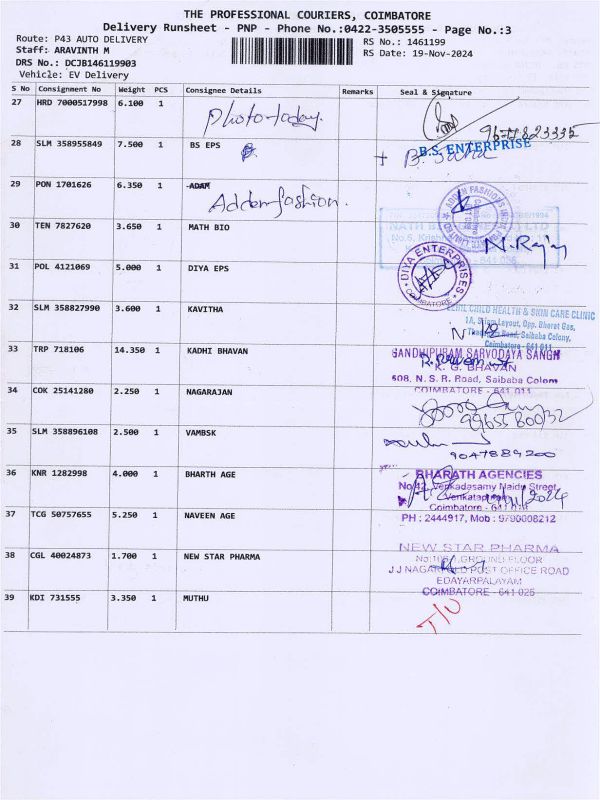 THE PROFESSIONAL COURIERS, COIMBATORE
Delivery Runsheet - PNP - Phone No.:0422-3505555 - Page No.:3
Route: P43 AUTO DELIVERY
RS No.: 1461199
Staff: ARAVINTH M
RS Date: 19-Nov-2024
DRS No.: DCJB146119903
Vehicle: EV Delivery
S No Consignment No Weight PCS Consignee Details Remarks Seal & Signature
27 HRD 7000517998 6.100 1 Phototoday.
28 SLM 358955849 7.500 1 BS EPS
B.S. ENTERPRISE
29 PON 1701626 6.350 1 ADAM
Addem fashion.
30 TEN 7827620 3.650 1 MATH BIO
N.Raja
31 POL 4121069 5.000 1 DIYA EPS
DIYA ENTERPRISES
COIMBATORE
32 SLM 358827990 3.600 1 KAVITHA
CHILD HEALTH & SKIN CARE CLINIC
Layout, Opp. Bharat Gas,
Saibaba Colony,
Coimbatore - 641 011
33 TRP 718106 14.350 1 KADHI BHAVAN
GANDHIPURAM SARVODAYA SANGH
K. G. BHAVAN
508, N. S. R. Road, Saibaba Colony
COIMBATORE - 641 011
34 COK 25141280 2.250 1 NAGARAJAN
9965580032
35 SLM 358896108 2.500 1 VAMBSK
9047889200
36 KNR 1282998 4.000 1 BHARTH AGE
BHARATH AGENCIES
No.42, Venkadasamy Naidu Street,
Venkatapuram
Coimbatore -
37 TCG 50757655 5.250 1 NAVEEN AGE
PH : 2444917, Mob : 9790008212
38 CGL 40024873 1.700 1 NEW STAR PHARMA
NEW STAR PHARMA
GROUND FLOOR
J.J NAGAR OLD POST OFFICE ROAD
EDAYARPALAYAM
COIMBATORE - 641 025
39 KDI 731555 3.350 1 MUTHU